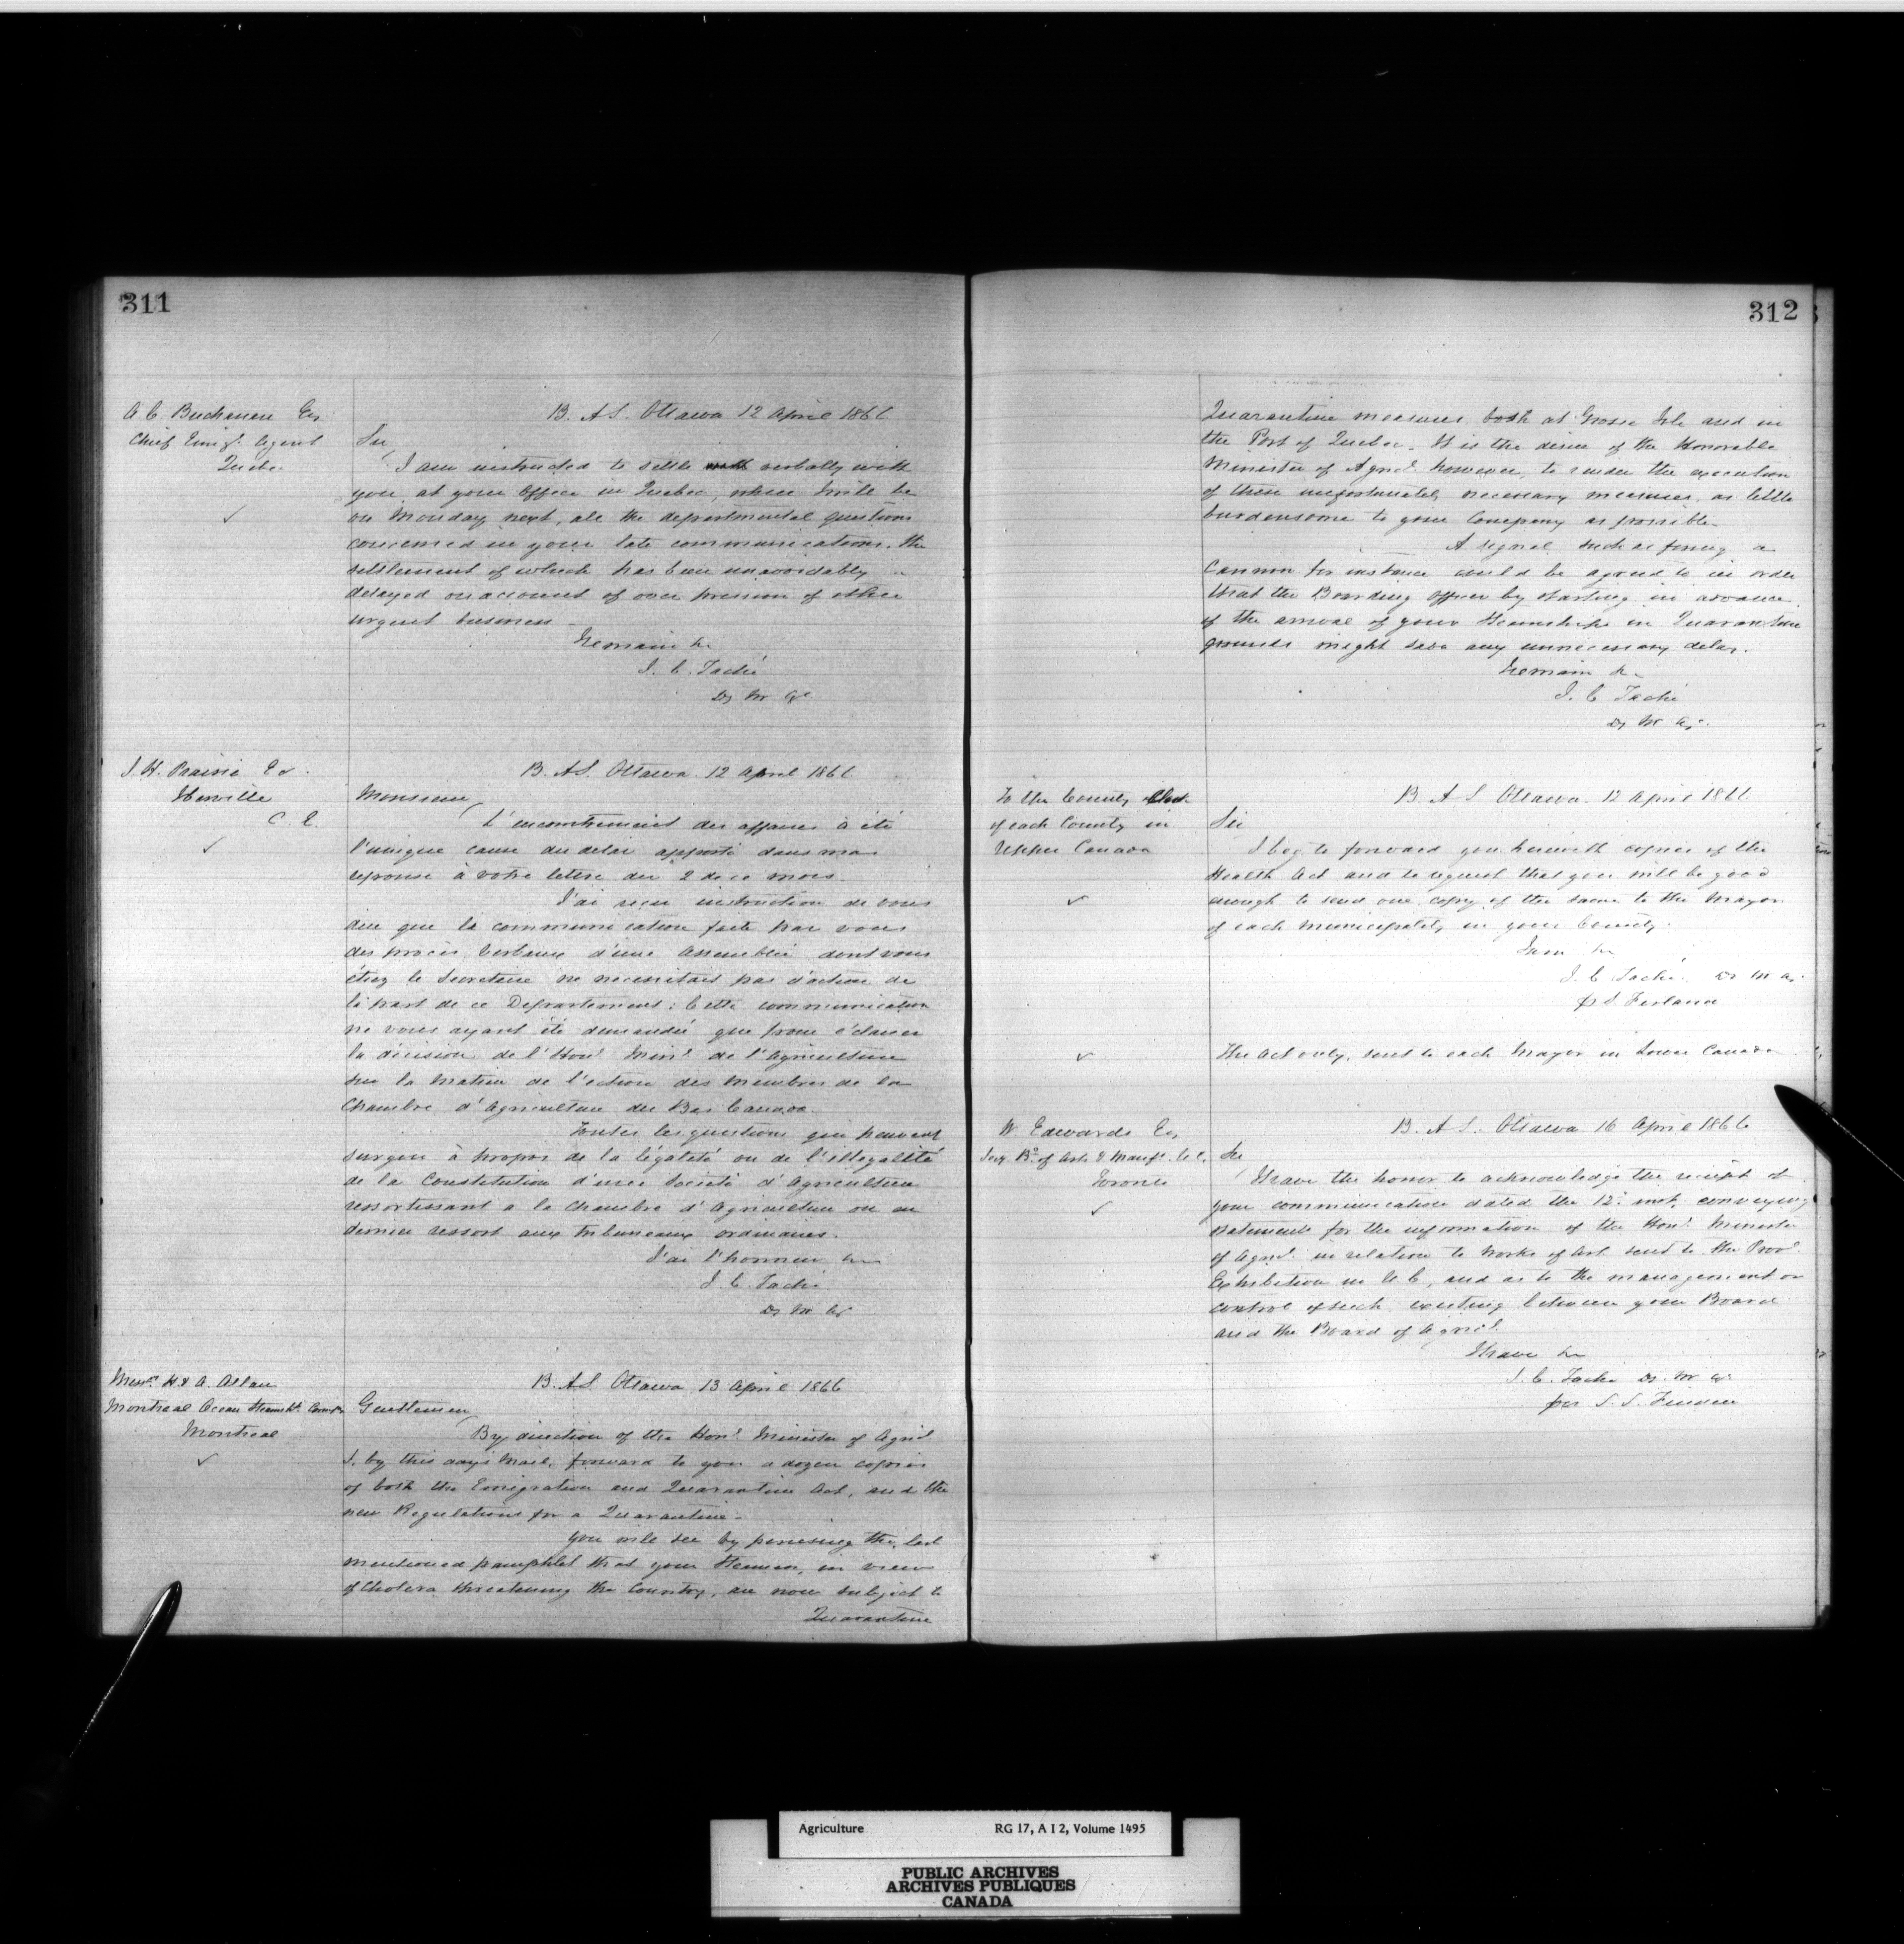 311
A C. Buchanan Esq
Chief Emigt. Agent
Quebec
B. A S. Ottawa 12 April 1866
Sir
I am instructed to settle verbally with
you, at your Office in Quebec, where I will be
on Monday next, all the departmental questions
concerned in your late communications. the
settlement of which has been unavoidably
delayed on account of over pression of other
urgent business
I remain &c
J. C. Taché
Dy M Ag
Iberville
C. E.
B. A S. Ottawa 12 April 1866
Monsieur
L'encombrement des affaires a été
l'unique cause du delai apporté dans ma
reponse à votre lettre du 2 de ce mois.
J'ai recu instruction de vous
dire que la communication faite par vous
des procès Verbaux d'une Assemblée dont vous
étiez le Secretaire ne necessitait pas d'action de
la part de ce Departement: Cette communication
ne vous ayant été demandée que pour éclairer
la décision de l'Honl Minr de l'Agriculture
sur la matiere de l'ection des Membres de la
Chambre d'Agriculture du Bas Canada.
Toutes les questions qui peuvent
surgir à propos de la légalité ou de l'illegalité
de la Constitution d'une Societé d'Agriculture
ressortissant a la Chambre d'Agriculture ou en
dernier ressort aux tribuneaux ordinaires.
J'ai l'honneur &c
J. C. Taché
Dy M Ag
Messrs H & A. Allan
Montreal Ocean Steamsh. Compy
Montreal
B. A S. Ottawa 13 April 1866
Gentlemen
By direction of the Honl. Minister of Agricl.
I, by this days Mail, forward to you a dozen copies
of both the Emigration and Quarantine Act, and the
new Regulations for a Quarantine.
You will see by perusing the last
mentioned pamphlet that your Steamers, in view
of Cholera threatening the Country, are now subject to
Quarantine
312
Quarantine measures both at Grosse Isle and in
the Port of Quebec. It is the desire of the Honorable
Minister of Agricl. however, to render the execution
of these unfortunately necessary measures, as little
burdensome to your Company as possible.
A signal such as firing a
Cannon for instance could be agreed to in order
that the Boarding Officer by starting in advance
of the arrival of your Steamships in Quarantine
grounds might save any unnecessary delay.
I remain &c
J. C Taché
Dy M Ag.
To the County Clerk
of each County in
Upper Canada
B. A S Ottawa. 12 April 1866
Sir
I beg to forward you herewith copies of the
Health Act and to request that you will be good
enough to send one copy of the same to the Mayor
of each Municipality in your County.
I am &c
J. C Taché. Dy M Ag.
The Act only, sent to each Mayor in Lower Canada
W. Edwards Esq
Secy Bd. of Arts & Manufs. U. C.
Toronto
B. A S. Ottawa 16 April 1866
Sir
I have the honor to acknowledge the receipt of
your communication dated the 12th inst. conveying
statements for the information of the Honl. Minister
of Agricl. in relation to Works of Art sent to the Provl.
Exhibition in U C, and as to the management or
control of such existing between your Board
and the Board of Agricl.
I have &c
J. C. Taché Dy. M Ag
Agriculture
RG 17, A I 2, Volume 1495
PUBLIC ARCHIVES
ARCHIVES PUBLIQUES
CANADA